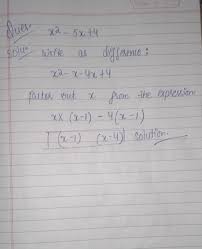 Ques: x² - 5x+4
Solu: Write as difference:
x² - x - 4x + 4
factor out x from the expression
x × (x-1) - 4(x-1)
[(x-1) (x-4)] solution.